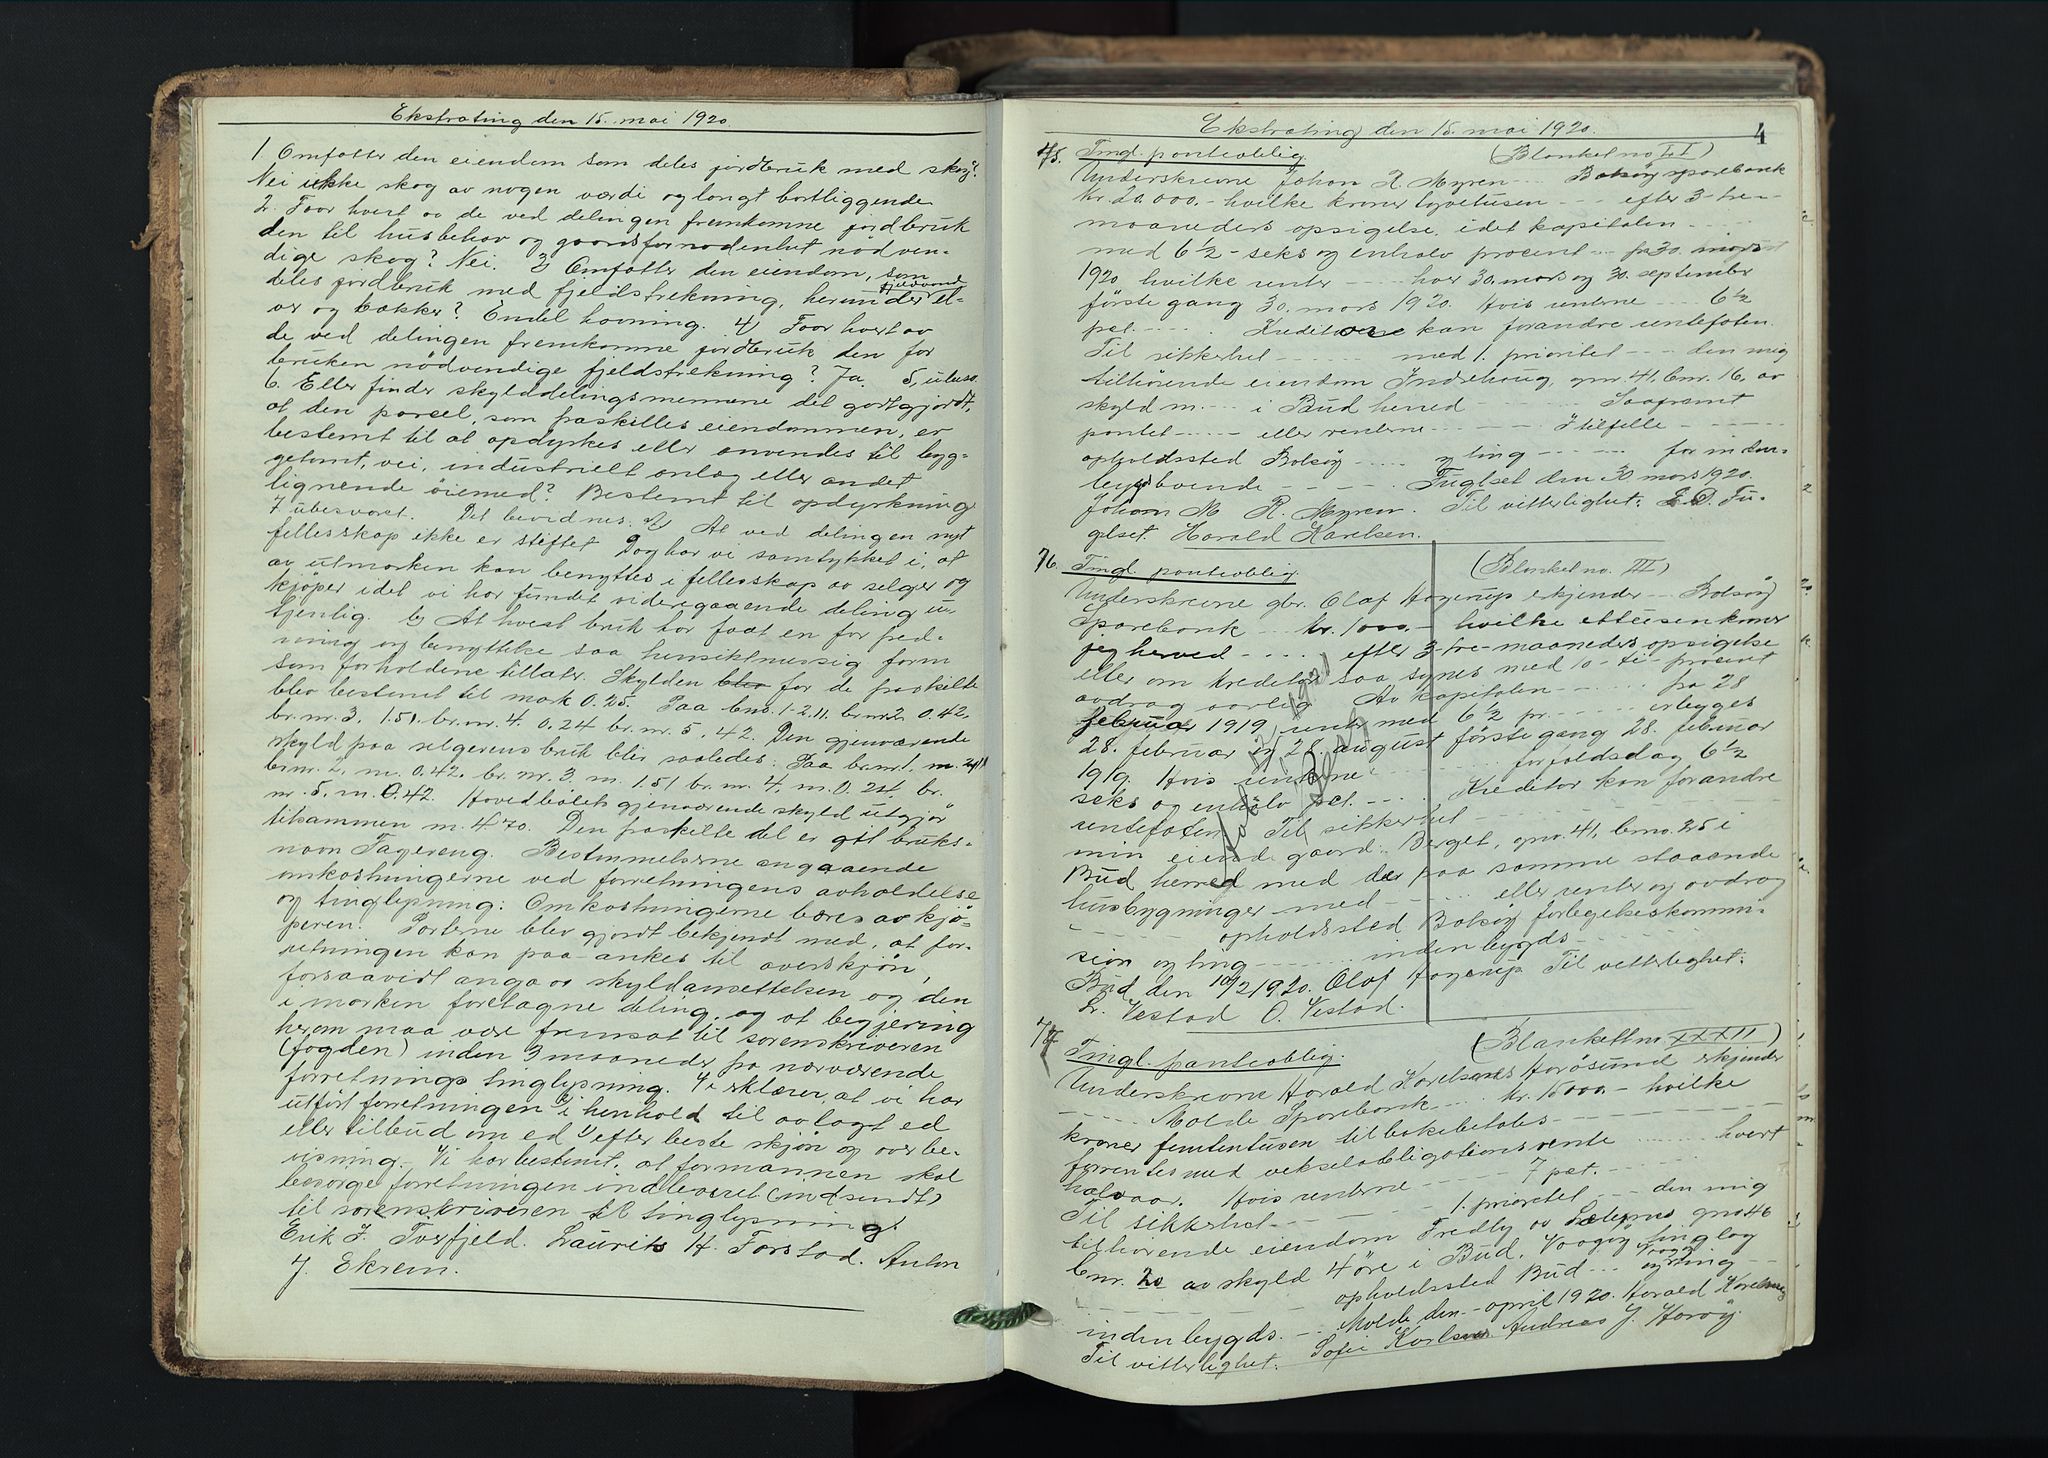 Ekstrating den 15. mai 1920.
1 Omfatter den eiendom som deles jordbruk med skog?
Nei ikke skog av nogen værdi og langt bortliggende
2. Faar hvert av de ved delingen fremkomne jordbruk
den til husbehov og gaardsfornødenhet nødven-
dige skog? Nei. 3) Omfatter den eiendom, som
deles jordbruk med fjeldstrekning, herunder el-
ver og bækker? Endel havning. 4) Faar hvert av
de ved delingen fremkomne jordbruk den for
bruken nødvendige fjeldstrekning? Ja. 5, ubesv.
6. Eller finder skylddelingsmennene det godtgjordt,
at den parcel, som fraskilles eiendommen, er
bestemt til at opdyrkes eller anvendes til byg-
getomt, vei, industrielt anlæg eller andet
lignende øiemed? Bestemt til opdyrkning
7 ubesvaret. Det bevidnes. a) At ved delingen nyt
fellesskap ikke er stiftet Dog har vi samtykket i, at
av utmarken kan benyttes i fellesskap av selger og
kjøper idet vi har fundet videregaaende deling u-
tjenlig. b) At hvert bruk har faat en for fred-
ning og benyttelse saa hensiktmessig form
som forholdene tillater. Skylden blev for de fraskilte
blev bestemt til mark 0.25. Paa bno. 1-2.11. br.nr 2. 0.42.
br. nr. 3. 1.51. br. nr. 4. 0.24 br. nr. 5. .42. Den gjenværende
skyld paa selgerens bruk blir saaledes: Paa br.nr. 1. m. 2.11
br.nr. 2, m. 0.42. br. nr. 3, m. 1.51 br. nr. 4, m. 0.24 br.
nr. 5. m. 0.42. Hovedbølets gjenværende skyld utgjør
tilsammen m. 4.70. Den fraskilte del er git bruks-
navn Fagereng. Bestemmelserne angaaende
omkostningerne ved forretningens avholdelse
og tinglysning: Omkostningerne bæres av kjø-
peren. Parterne blev gjordt bekjendt med, at for-
retningen kan paa-ankes til overskjøn,
forsaavidt angaar skyldansettelsen og den
i marken foretagne deling, og at begjering
herom maa være fremsat til sorenskriveren
(fogden) inden 3 maaneder fra nærværende
forretnings tinglysning. Vi erklærer, at vi har
utført forretningen i henhold til avlagt ed
eller tilbud om ed efter beste skjøn og overbe-
visning. Vi har bestemt, at formannen skal
besørge forretningen indleveret (indsendt)
til sorenskriveren til tinglysning.
Erik J. Tverfjeld. Laurits H. Farstad. Anton
J. Ekrem.
Ekstrating den 15. mai 1920.
4
75. Tingl. panteoblig. (Blanket no LI)
Underskrevne Johan R. Myren .... Bolsøy sparebank
kr. 20.000.- hvilke kroner tyvetusen - - - efter 3-tre-
maaneders opsigelse. idet kapitalen ....
med 6½ - seks og enhalv procent ... fra 30. mars
1920 hvilke renter .... hver 30. mars og 30. september
første gang 30. mars 1920. Hvis renterne .... 6½
pct. .... Kreditor kan forandre rentefoten.
Til sikkerhet - - - - - med 1. prioritet - - - den mig
tilhørende eiendom Indrehaug, gnr. 41, bnr. 16, av
skyld m. .... i Bud herred - - - - Saafremt
pantet - - - - eller renterne - - - - I tilfelle - - - -
opholdssted Bolsøy .... ting - - - - for inden-
bygdsboende - - - - Fuglset den 30 mars 1920.
Johan R. Myren. Til vitterlighet: E. D. Fu-
gelset. Harald Karelsen.
76. Tingl. panteoblig. (Blanket no. III)
Underskrevne gbr. Olaf Hagerup erkjender ... Bolsøy
Sparebank ... kr. 1000.- hvilke ettusen kroner
jeg herved - - - - efter 3-tre-maaneders opsigelse
eller om kreditor saa synes med 10-ti-procent
avdrag aarlig Av kapitalen - - - fra 28
februar 1919 rente med 6½ pr. .... erlegges
28. februar og 28. august første gang 28. februar
1919. Hvis renterne - - - - forfaldsdag 6½
seks og enhalv pct. - - - . Kreditor kan forandre
rentefoten Til sikkerhet - - - -
min eiende gaard: Berget, gno. 41, bno. 25 i
Bud herred med der paa samme staaende
husbygninger med - - - - eller renter og avdrag
- - - - opholdssted Bolsøy forlegelseskommi-
sion og ting - - - - indenbygds - - - -
Bud, den 10/2 1920. Olaf Hagerup Til vitterlighet:
L. Vestad O. Vestad.
77. Tingl. panteoblig. (Blankett nr XXXII)
Underskrevne Harald Karelsen Harøsund erkjender
- - - - Molde Sparebank .... kr. 15000.- hvilke
kroner femtentusen tilbakebetales - - - -
forrentes med vekselobligationsrente .... hvert
halvaar. Hvis renterne - - - 7 pct. - - - -
Til sikkerhet - - - - 1. prioritet - - - den mig
tilhørende eiendom Fredly av gno 46
bnr. 20 av skyld 4 øre i Bud, Vaagøy tinglag
- - - - opholdssted Bud ... Vaagøy ting - -
indenbygds. - - Molde den - april 1920. Harald Karelsen
Til vitterlighet: Sofie Karlsen Andreas J. Harøy.